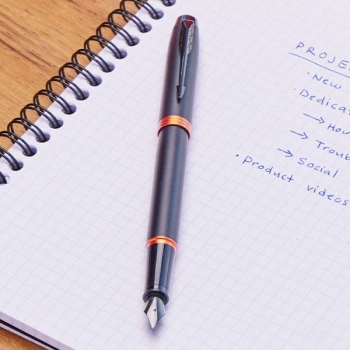 New
Dedicat
→ Hou
→ Troub
→ Social
• Product videos